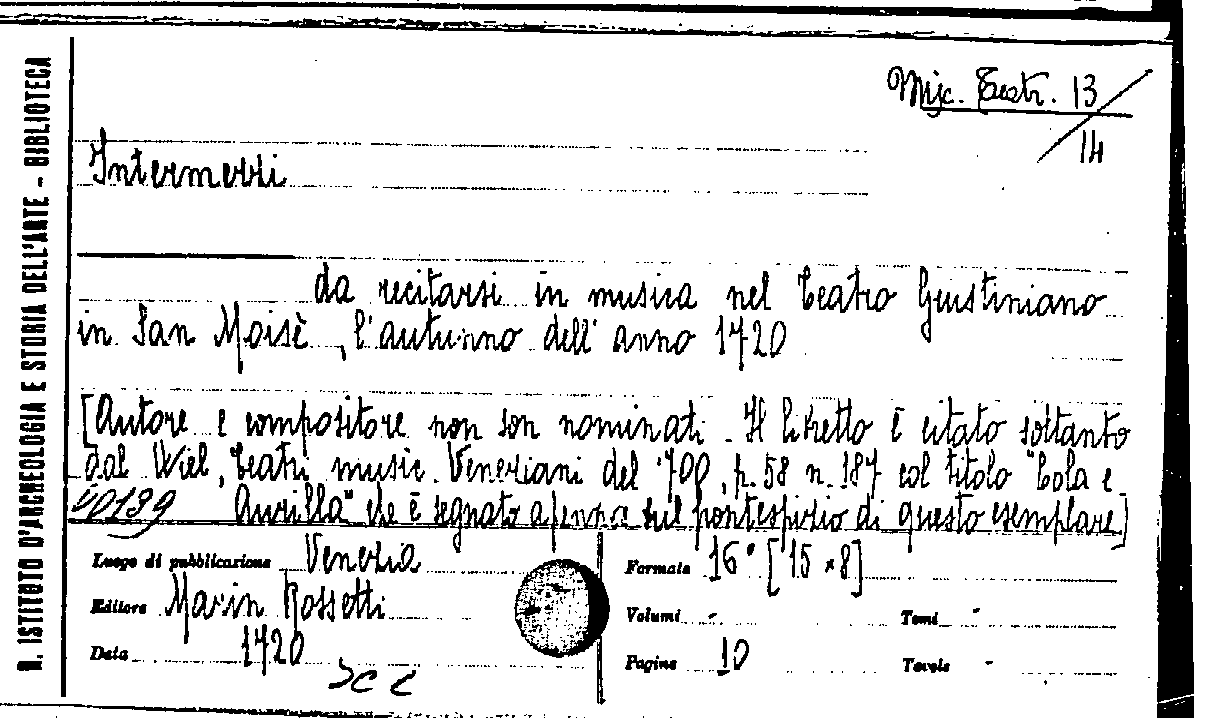 R. ISTITUTO D'ARCHEOLOGIA E STORIA DELL'ARTE - BIBLIOTECA
Misc. Teatr. 13/14
Intermezzi
da recitarsi in musica nel Teatro Giustiniano
in San Moisè, l'autunno dell'anno 1720
[Autore e compositore non son nominati. Il libretto è citato soltanto
dal Wiel, Teatri music. Veneziani del '700, p. 58 n. 187 col titolo "Cola e
Aurilla" che è segnato a penna sul frontespizio di questo esemplare]
Luogo di pubblicazione Venezia
Editore Marin Rossetti
Data 1720
Formato 16° [15 x 8]
Volumi - Tomi -
Pagine 10 Tavole -